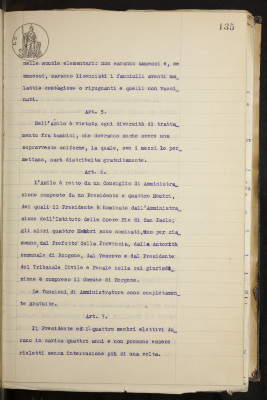 135
nelle scuole elementari: non saranno ammessi e, se
ammessi, saranno licenziati i fanciulli aventi ma_
lattie contagiose o ripugnanti e quelli non vacci_
nati.
Art. 5.
Nell'Asilo è vietata ogni diversità di tratta_
mento fra bambini, che dovranno anche avere una
sopravveste uniforme, la quale, ove i mezzi lo per_
mettano, sarà distribuita gratuitamente.
Art. 6.
L'Asilo è retto da un Consiglio di Amministra_
zione composto da un Presidente e quattro Membri,
dei quali il Presidente è nominato dall'Amministra_
zione dell'Istituto delle Opere Pie di San Paolo;
gli altri quattro Membri sono nominati, uno per cia_
scuno, dal Prefetto della Provincia, dalla Autorità
comunale di Borgone, dal Vescovo e dal Presidente
del Tribunale Civile e Penale nella cui giurisdi_
zione è compreso il Comune di Borgone.
Le funzioni di Amministratore sono completamen_
te gratuite.
Art. 7.
Il Presidente ed i quattro membri elettivi du_
rano in carica quattro anni e non possono essere
rieletti senza interruzione più di una volta.